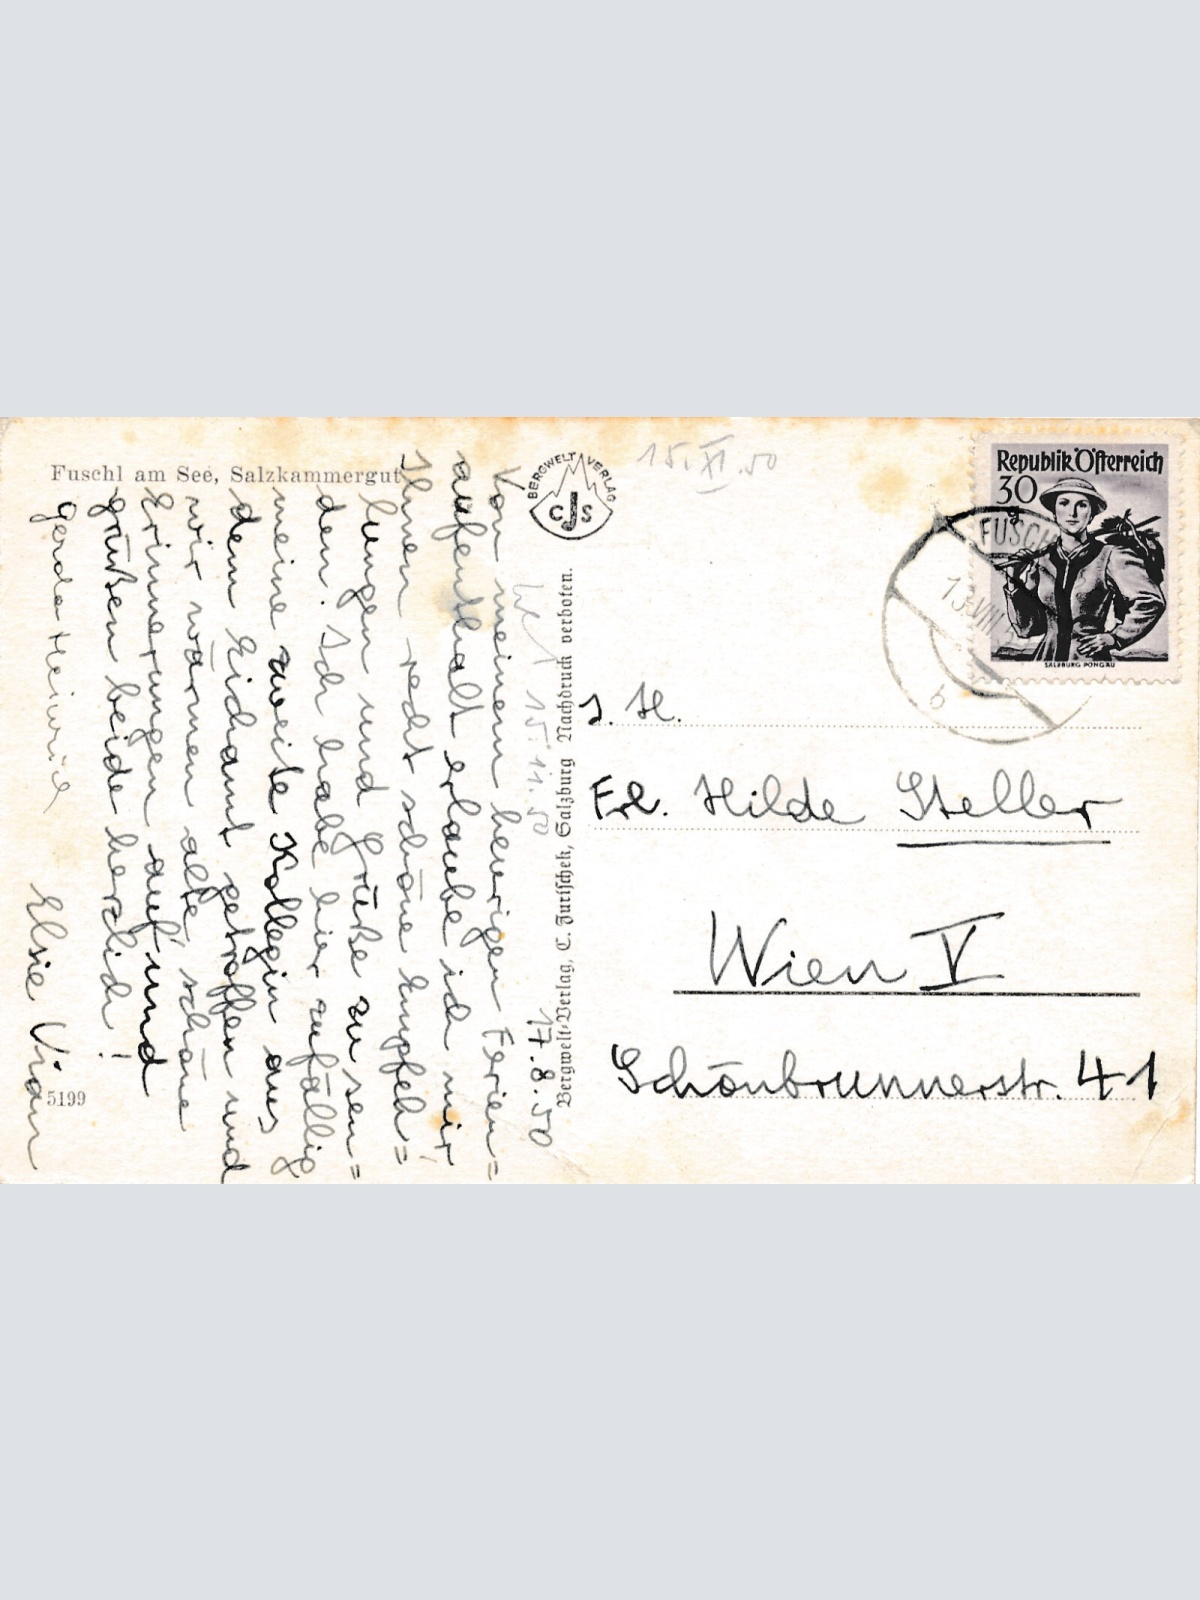 Fuschl am See, Salzkammergut
17.8.50
Von meinem heurigen Ferien=
aufenthalt erlaube ich mir
Ihnen recht schöne Empfeh=
lungen und Grüße zu sen=
den. Ich habe hier zufällig
meine zweite Kollegin aus
dem Eichamt getroffen und
wir wärmen alte schöne
Erinnerungen auf und
grüßen beide herzlich!
Gerda Elsie
5199
BERGWELT VERLAG
CJS
Bergwelt-Verlag, C. Jurischek, Salzburg Nachdruck verboten.
15.XI.50
15.11.50
Republik Österreich
30
SALZBURG PONGAU
FUSCHL
13.VIII
b
Frl. Hilde Steller
Wien V
Schönbrunnerstr. 41